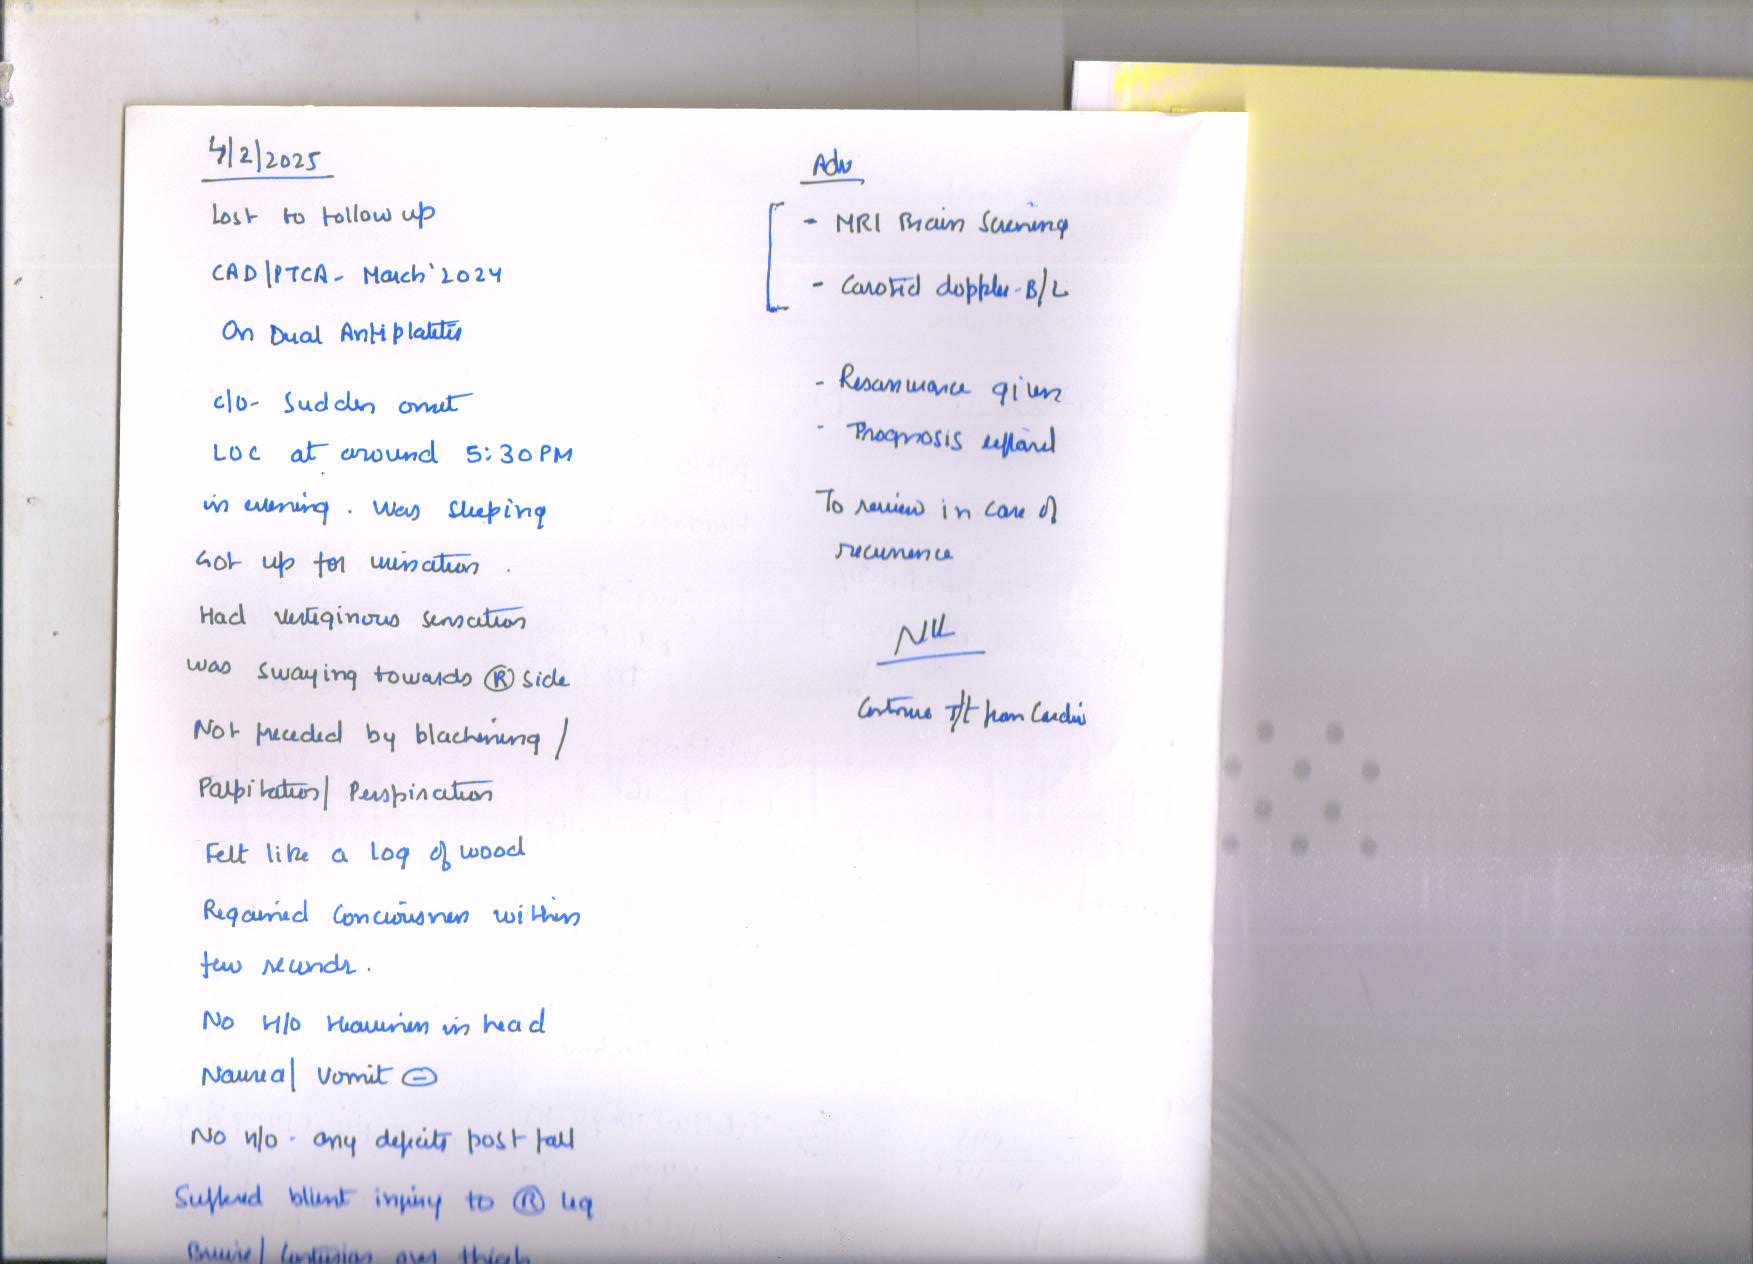 4/2/2025
Lost to follow up
CAD/PTCA - March' 2024
On Dual Antiplatelets
c/o - Sudden onset
LOC at around 5:30PM
in evening. Was sleeping
Got up for urination.
Had vertiginous sensation
was swaying towards Ⓡ side
Not preceded by blackening /
Palpitation / Perspiration
Felt like a log of wood
Regained conciousness within
few seconds.
No H/O Heaviness in head
Nausea / Vomit ⊖
No H/O - any deficits post fall
Suffered blunt injury to Ⓡ leg
Bruise / Contusion over thigh
Adv
- MRI Brain Screening
- Carotid doppler - B/L
- Reassurance given
- Prognosis explained
To review in case of
recurrence
Continue T/t from Cardio